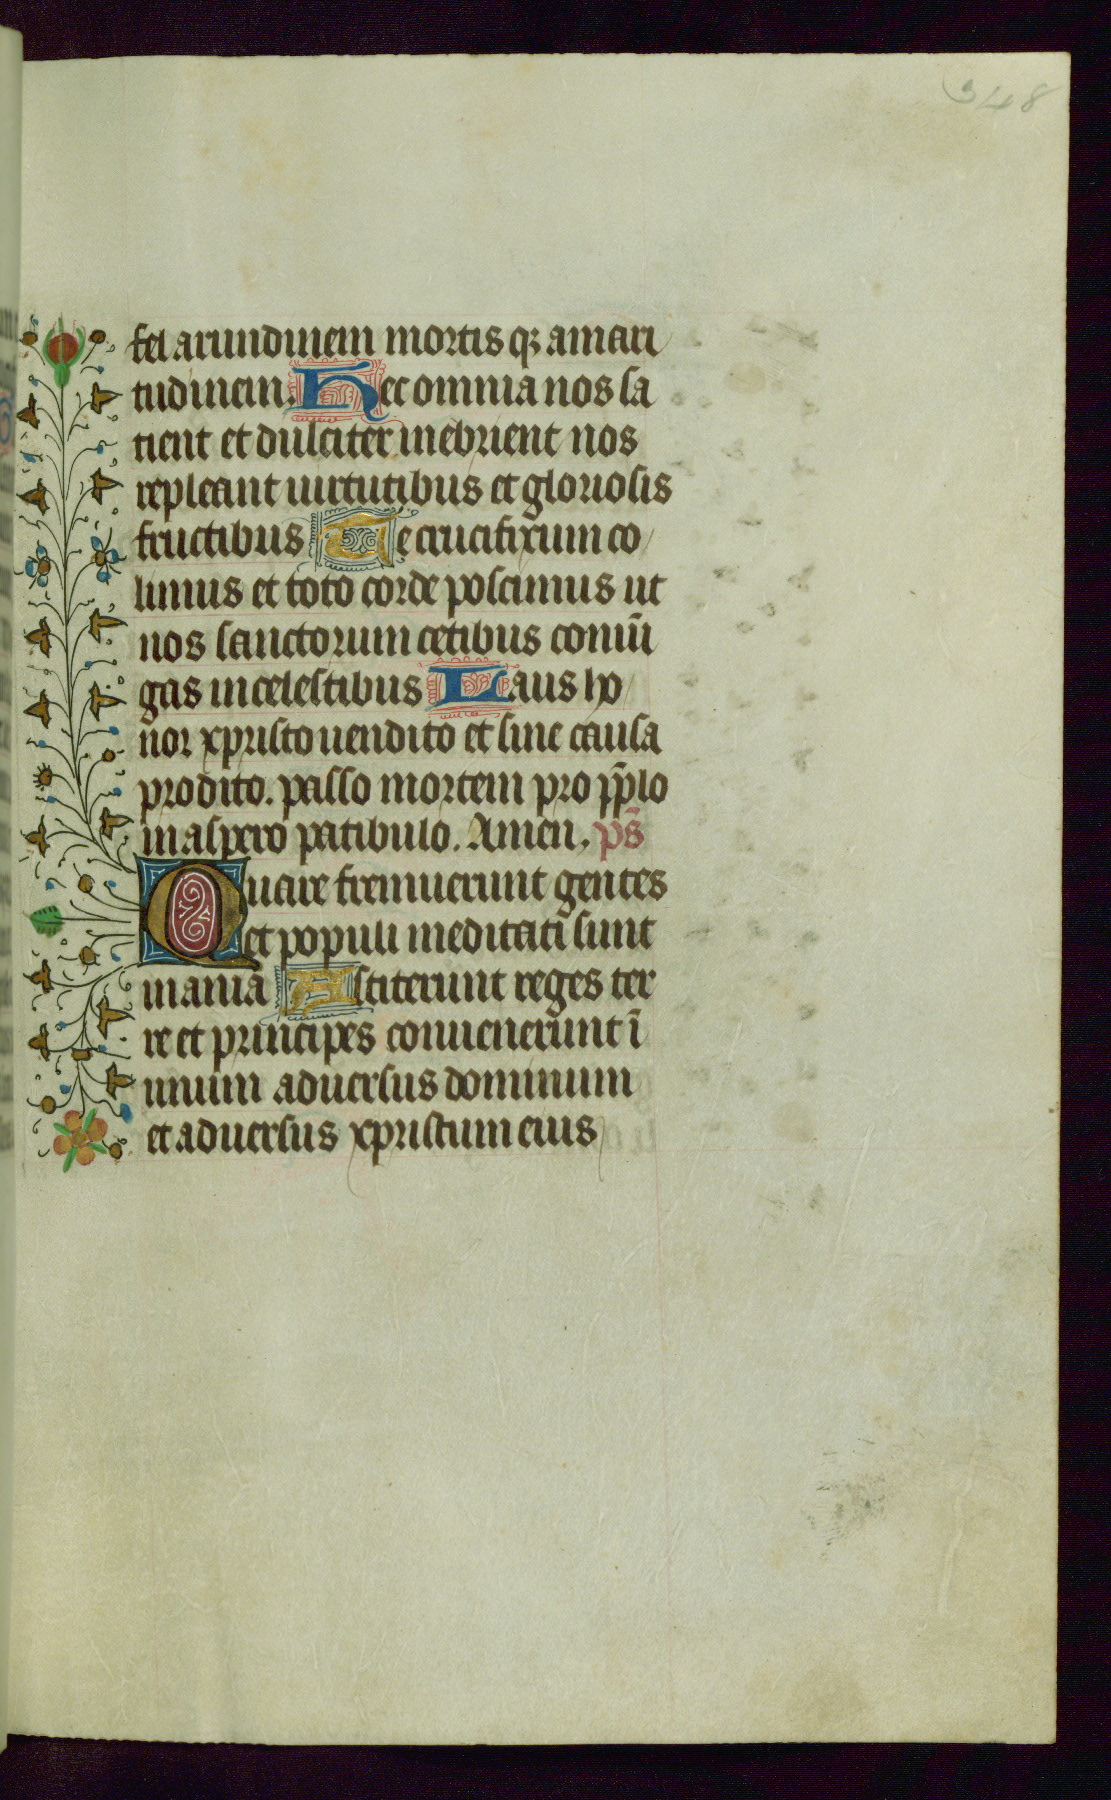 348
fel arundinem mortis qz amari
tudinem. Hec omnia nos sa
tient et dulciter inebrient nos
repleant uirtutibus et gloriosis
fructibus Te crucifixum co
limus et toto corde poscimus ut
nos sanctorum cetibus coniũ
gas in celestibus Laus ho
nor xpristo uendito et sine causa
prodito. passo mortem pro pp̄lo
in aspero patibulo. Amen. ps̄
Quare fremuerunt gentes
et populi meditati sunt
inania Astiterunt reges ter
re et principes conuenerunt ī
unum aduersus dominum
et aduersus xpristum eius